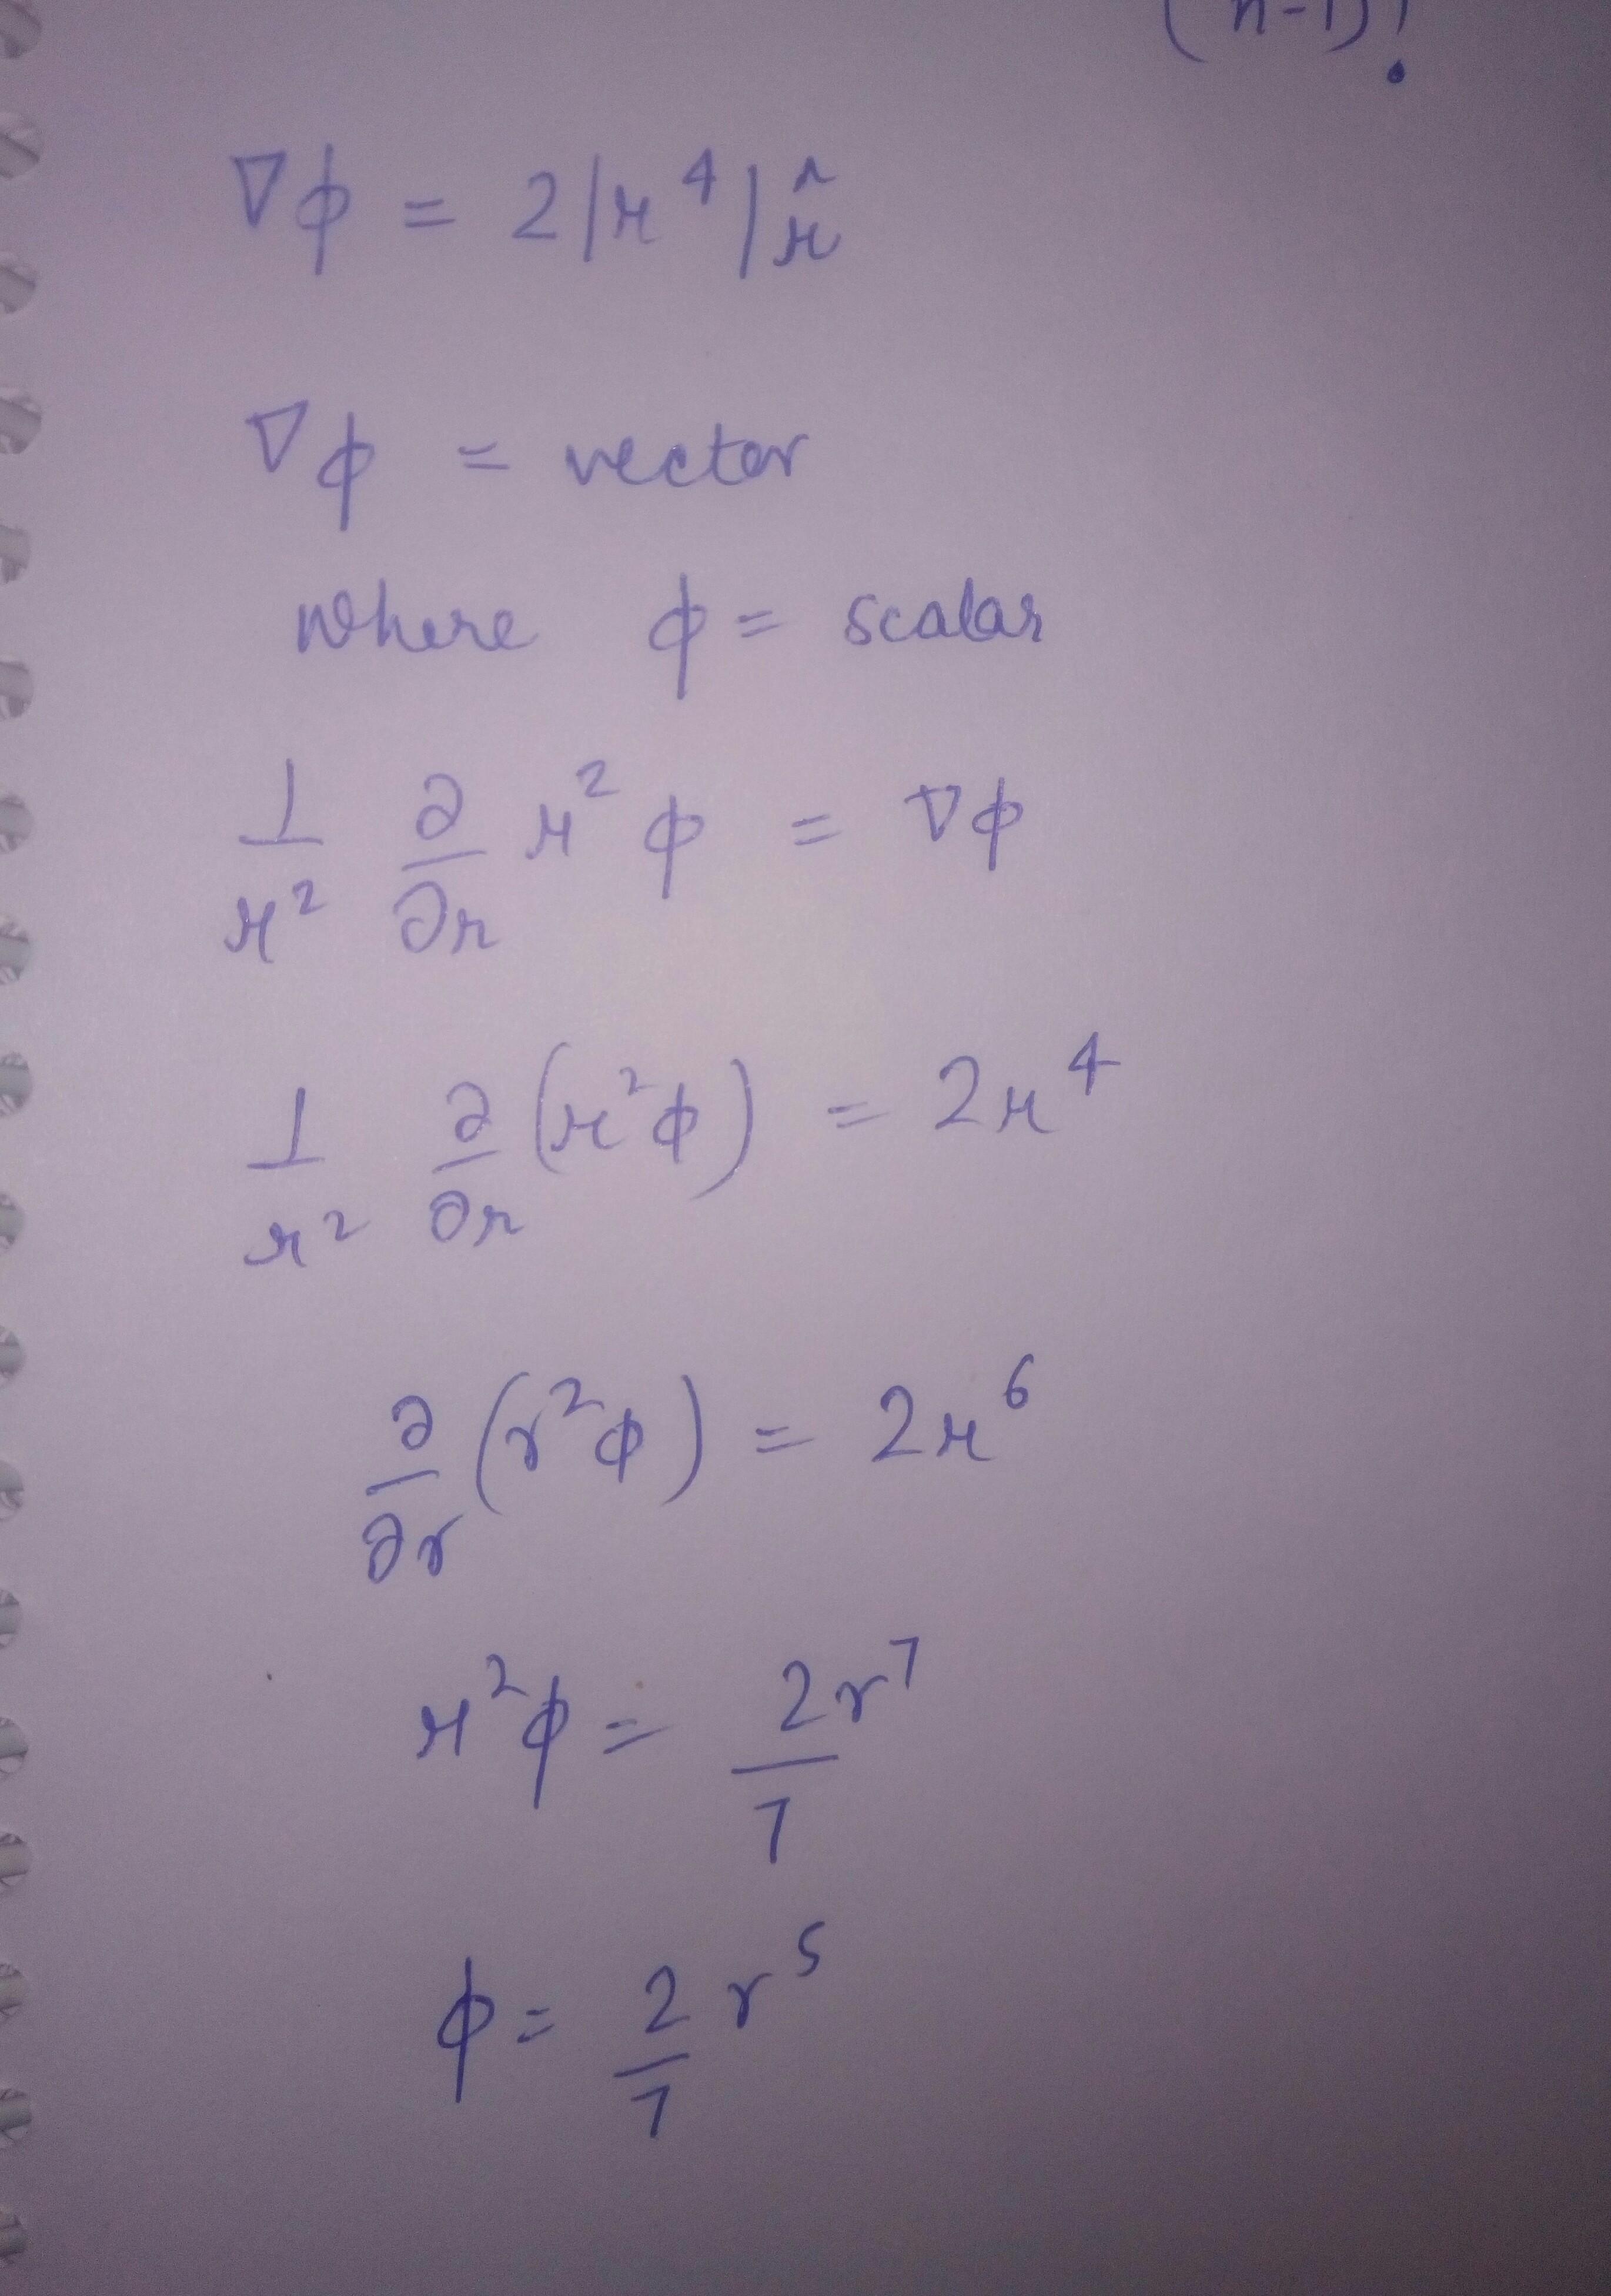 (n-1)!
∇ϕ = 2|r⁴|r̂
∇ϕ = vector
where ϕ = scalar
1/r² ∂/∂r r²ϕ = ∇ϕ
1/r² ∂/∂r (r²ϕ) = 2r⁴
∂/∂r (r²ϕ) = 2r⁶
r²ϕ = 2r⁷/7
ϕ = 2/7 r⁵